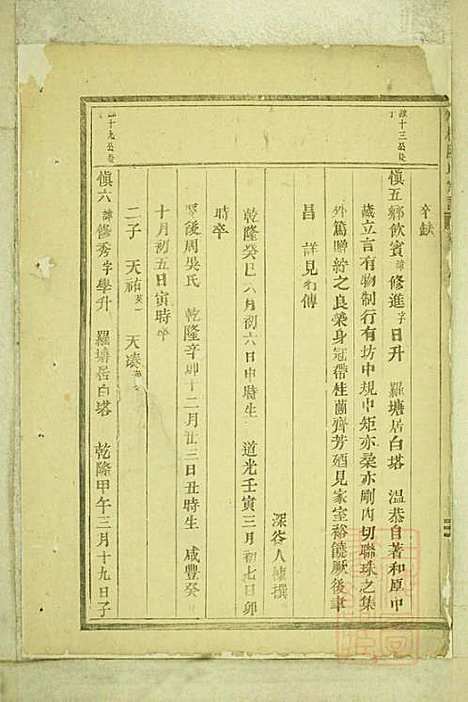 卒缺
慎五鄉飲賓諱修進字日升 羅塘居白塔 溫恭自著和厚中
藏立言有物制行有坊中規中矩亦桑亦剛內切聯珠之集
外篤聯紛之良榮身冠帶桂蘭齊芳廼見家室裕饒厥後聿
昌 詳見行傳
深谷人棟撰
乾隆癸巳八月初六日申時生 道光壬寅三月初七日卯
時卒
後周吳氏 乾隆辛卯十二月廿三日丑時生 咸豐癸
十月初五日寅時卒
二子 天祐英一 天湊
慎六諱修秀字學升 羅塘居白塔 乾隆甲午三月十九日子
十三公
十九公